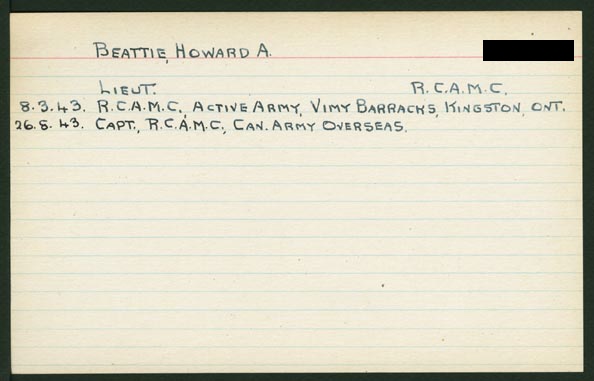 BEATTIE, HOWARD A.
LIEUT. R.C.A.M.C.
8.3.43. R.C.A.M.C., ACTIVE ARMY, VIMY BARRACKS, KINGSTON, ONT.
26.8.43. CAPT., R.C.A.M.C., CAN. ARMY OVERSEAS.